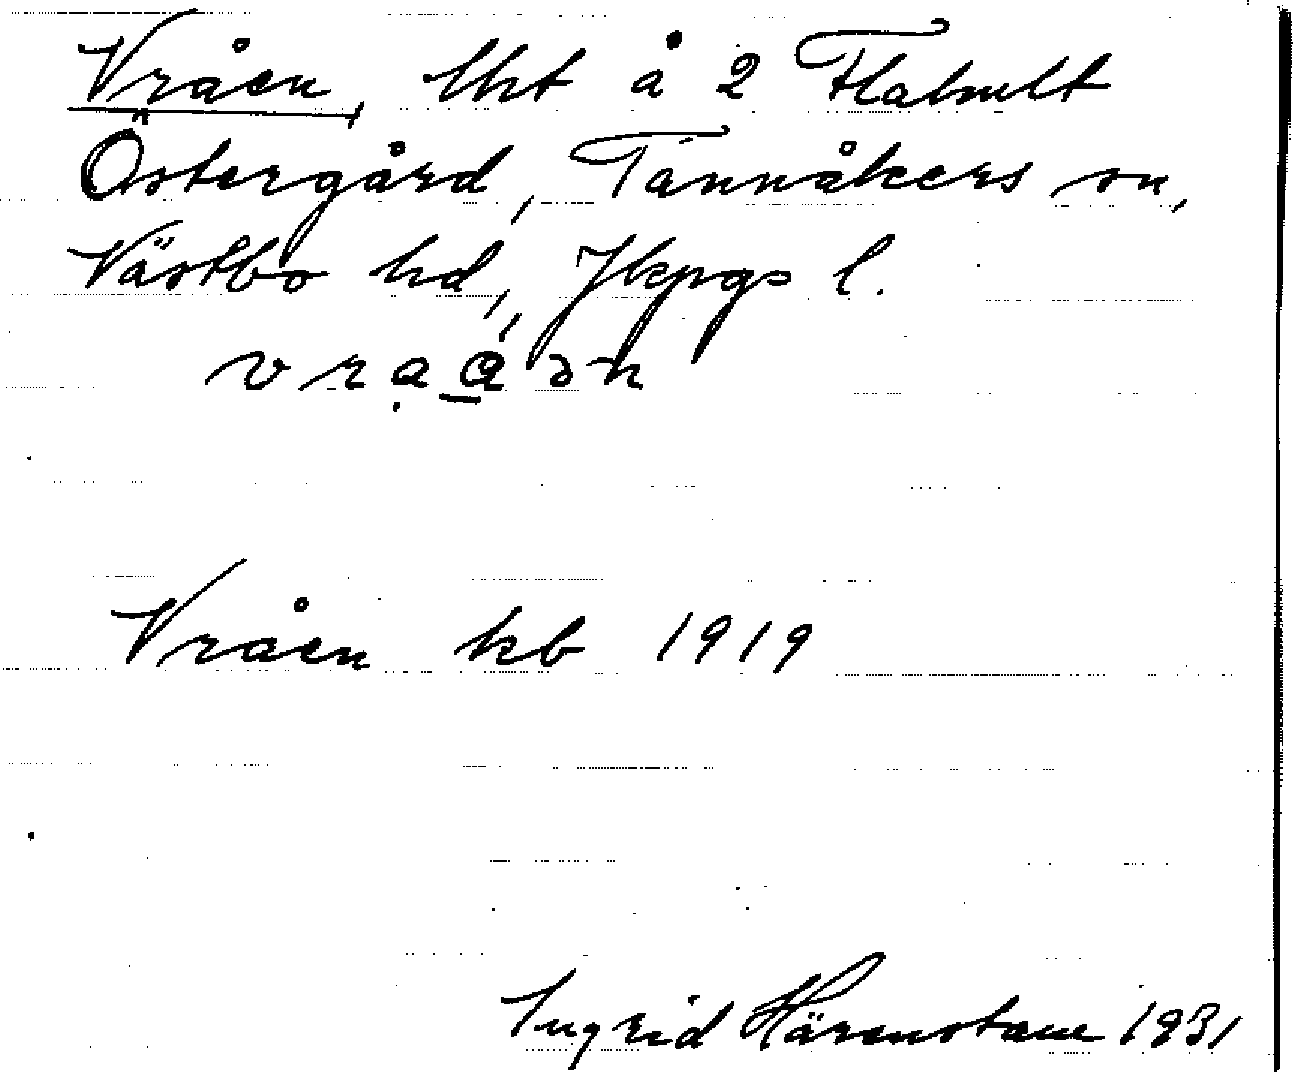 Vråen, lht å 2 Flahult
Östergård, Tannåkers sn,
Västbo hd, Jkpgs l.
vrạa̱ən
Vråen kb 1919
Ingrid Härenstam 1931